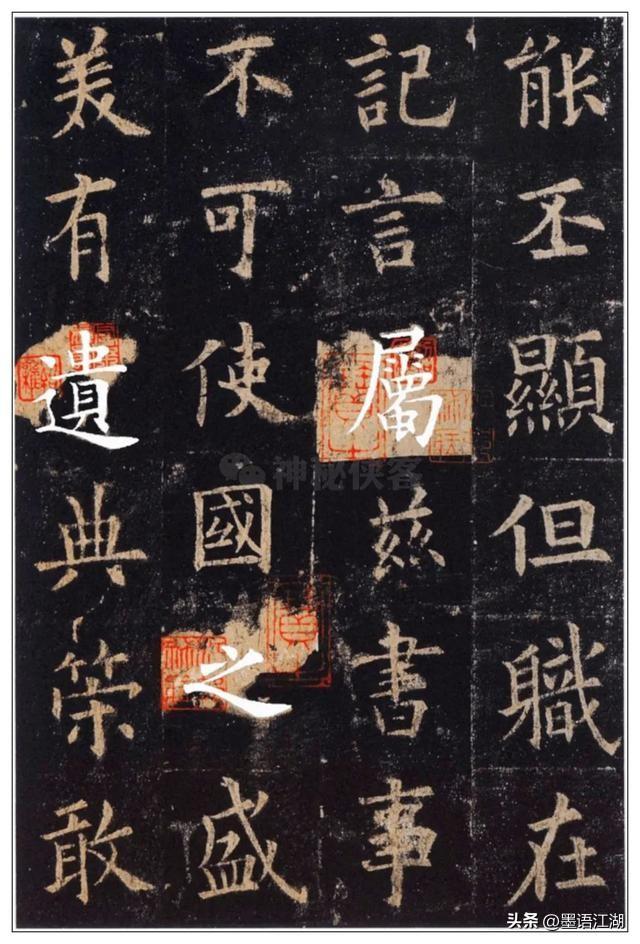 能丕顯但職在
記言屬茲書事
不可使國之盛
美有遺典策敢
神秘侠客
头条 @墨语江湖